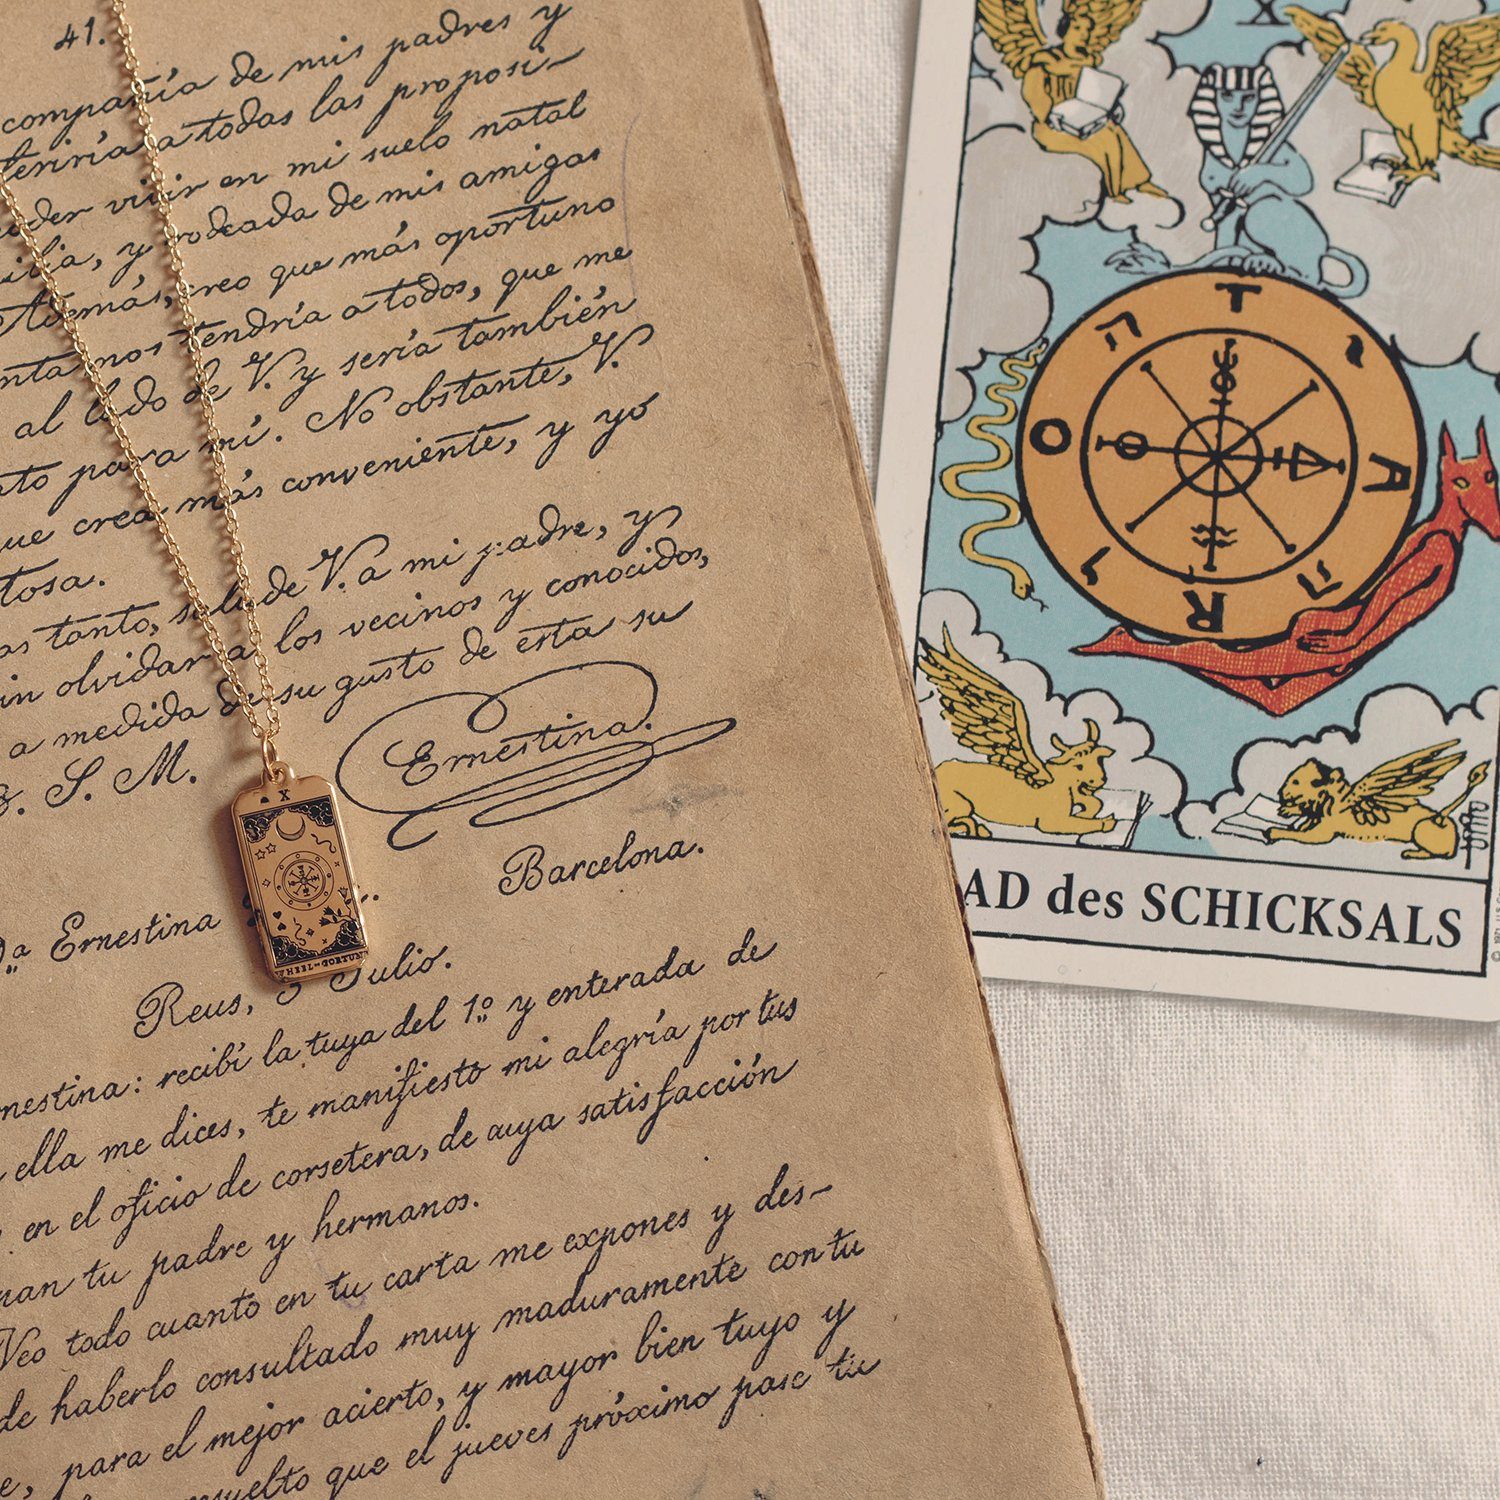 41.
compañía de mis padres y
feriría a todas las proposi-
poder vivir en mi suelo natal
milia, y rodeada de mis amigas
Además, creo que más oportuno
nos tendría a todos, que me
al lado de V. y sería también
para mí. No obstante, V.
que crea más conveniente, y yo
tosa.
tanto, salude V. a mi padre, y
sin olvidar a los vecinos y conocidos,
a medida de su gusto de esta su
S. M.
Ernestina.
Barcelona.
D.ª Ernestina
Reus, 3 Julio.
nestina: recibí la tuya del 1.º y enterada de
ella me dices, te manifiesto mi alegría por tus
en el oficio de corsetera, de cuya satisfacción
tu padre y hermanos.
Veo todo cuanto en tu carta me expones y des-
de haberlo consultado muy maduramente con tu
e, para el mejor acierto, y mayor bien tuyo y
suelto que el jueves próximo pase tu
X
WHEEL-FORTUN
X
T
A
R
O
י
ה
ו
ה
AD des SCHICKSALS